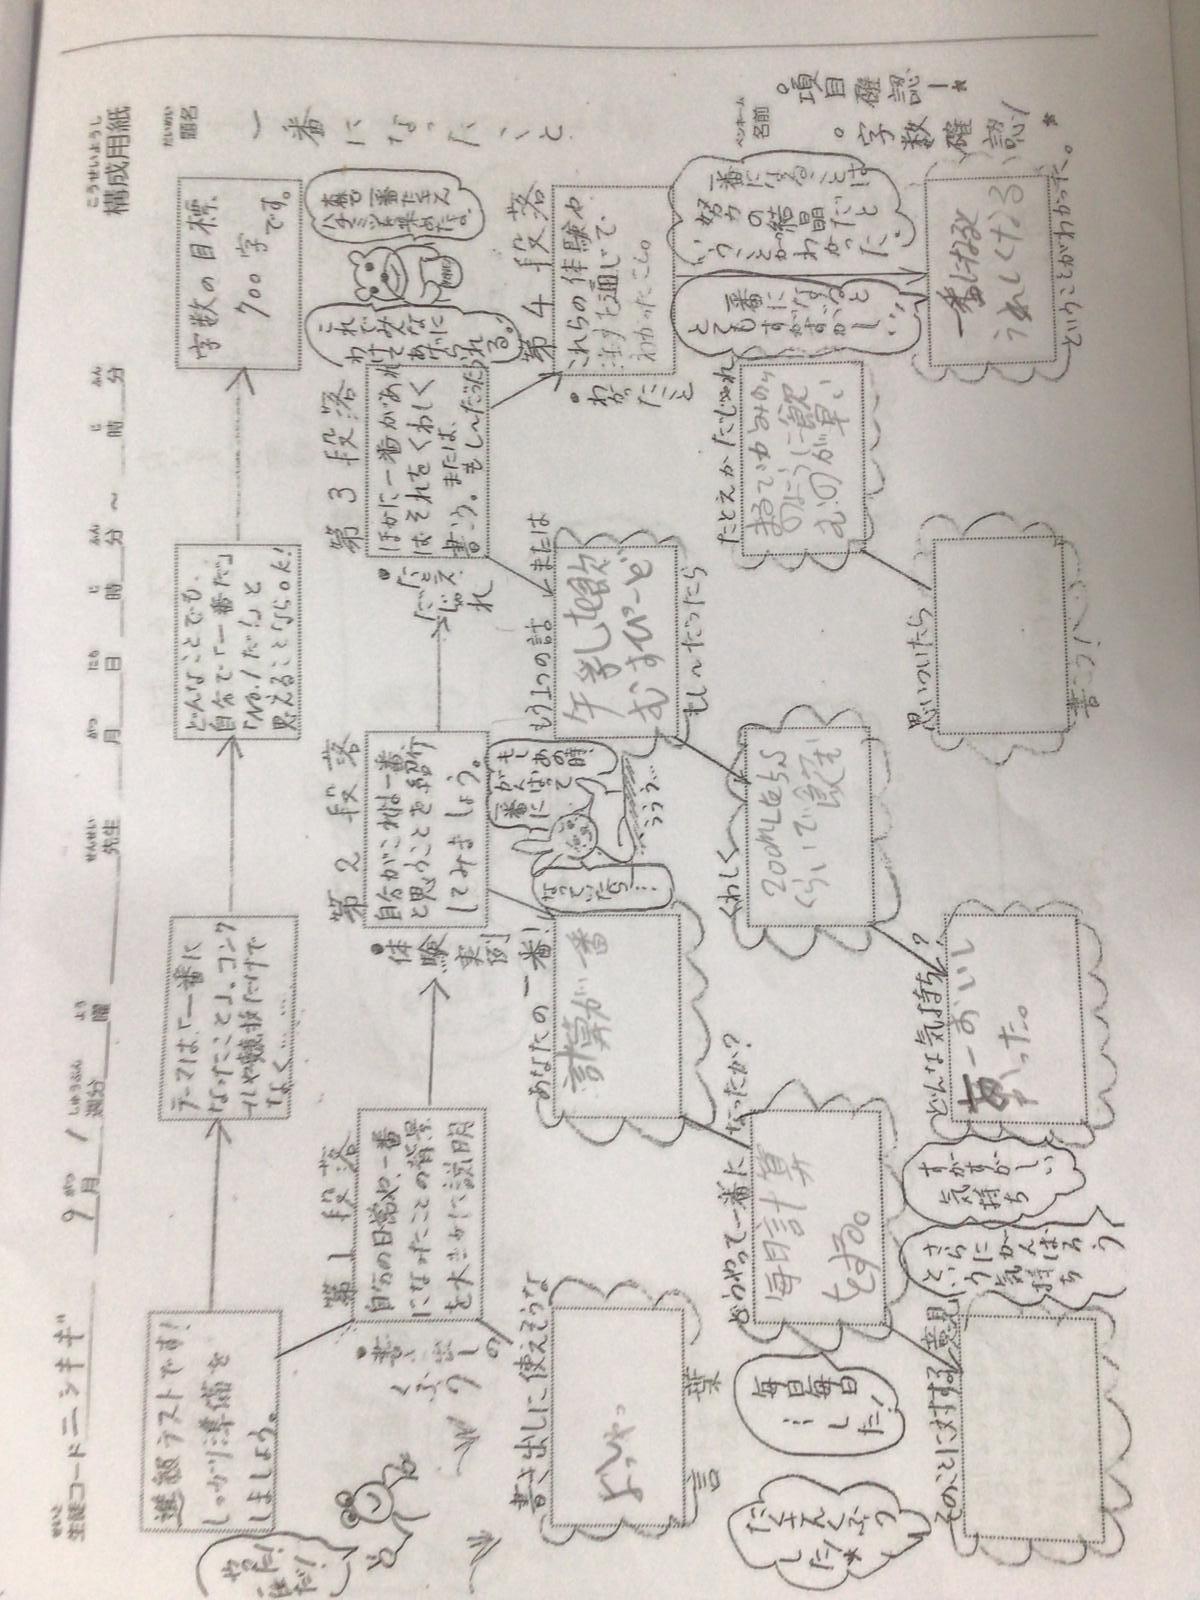 構成用紙
こうせいようし
生徒コード ニンキギ
せいと
9月 1週分
がつ しゅうぶん
曜
よう
先生
せんせい
月 日 時 分 ~ 時 分
がつ にち じ ふん じ ふん
題名
だいめい
一番になったこと
ペンネーム
名前
。項目確認!*
。字数確認!*
進級テストです!
しっかり準備を
しましょう。
テーマは、「一番に
なったこと」。コンク
ールや競技だけで
なく……
どんなことでも、
自分で「一番だ」
「No.1だ!」と
思えることならOK!
字数の目標
700字です。
やった!
第1段落
自分の日常や、一番
になったことの背景
を大まかに説明
書き出しの
くふう
書き出しに使えそうな
言葉
よしやっ
第2段落
自分がこれは一番
と思うことを紹介
してみましょう。
体験実例
あなたの一番!
計算が一番
どうやって一番になったか?
毎日計算
をする。
毎日毎日
…し
た!
たくさんくふう
した!*
そのことに対する意見
どんな気持ち?
あーおいし
かった。
すがすがしい
気持ち
さらにがんばろ
うという
気持ち
第3段落
ほかに一番があれ
ばそれをくわしく
書こう。または、
もし~だったら
たとえ
だじゃれ
もう1つの話
または
もし~だったら
牛乳を飲
むすぴーど
くわしく
200mLを5びょう
くらいで飲む
たとえかだじゃれ
まるでかみのり
のように飲
むのが早い
思いついたら
書こう!
もし
あの時
がんばって
一番に
なっていたら…
ううう…
本日一番たくさん
ハチミツを集めたよ。
これでみんなに
わけてあげられ
る。
第4段落
これらの体験や
話を通じて、
わかったこと。
わかったこと
一番になることは
努力の結晶だと
いうことが
わかった。
一番になると
とても
すがすがしい…
一番になると
うれしくなる
ということがわかった。